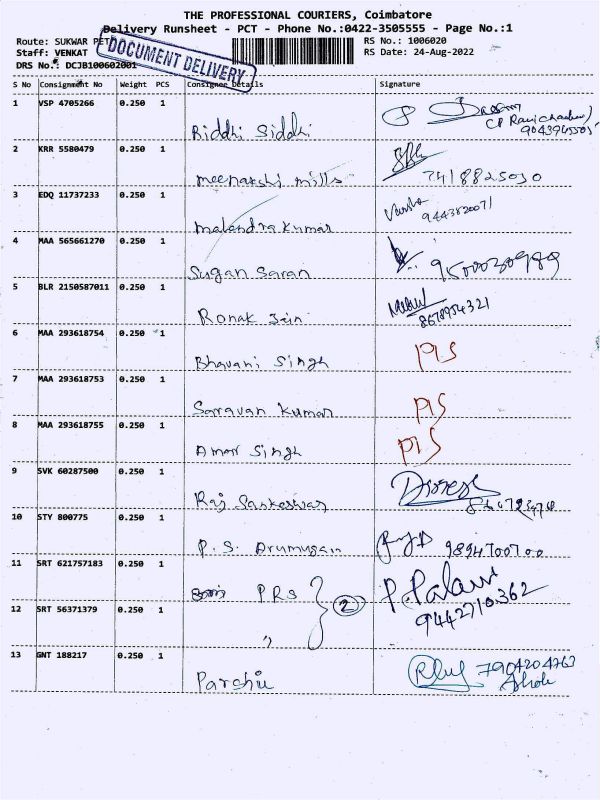 THE PROFESSIONAL COURIERS, Coimbatore
Delivery Runsheet - PCT - Phone No.:0422-3505555 - Page No.:1
Route: SUKWAR PET
RS No.: 1006020
Staff: VENKAT
RS Date: 24-Aug-2022
DRS No.: DCJB100602001
DOCUMENT DELIVERY
S No Consignment No Weight PCS Consignee Details Signature
1 VSP 4705266 0.250 1 Riddhi Siddhi
2 KRR 5580479 0.250 1 meenakshi mills 7418825030
3 EDQ 11737233 0.250 1 mahendra kumar
4 MAA 565661270 0.250 1 Sugan Saran 9500030989
5 BLR 2150587011 0.250 1 Ronak Jain 8678954321
6 MAA 293618754 0.250 1 Bhavani Singh PIS
7 MAA 293618753 0.250 1 Saravan Kumar PIS
8 MAA 293618755 0.250 1 Amar Singh PIS
9 SVK 60287500 0.250 1 Raj Sankeswar
10 STY 800775 0.250 1 P.S. Arumugam 9894700700
11 SRT 621757183 0.250 1 PRS 2 P. Palani
9442710362
12 SRT 56371379 0.250 1 "
13 GNT 188217 0.250 1 Parshu 7904204763
Ashok